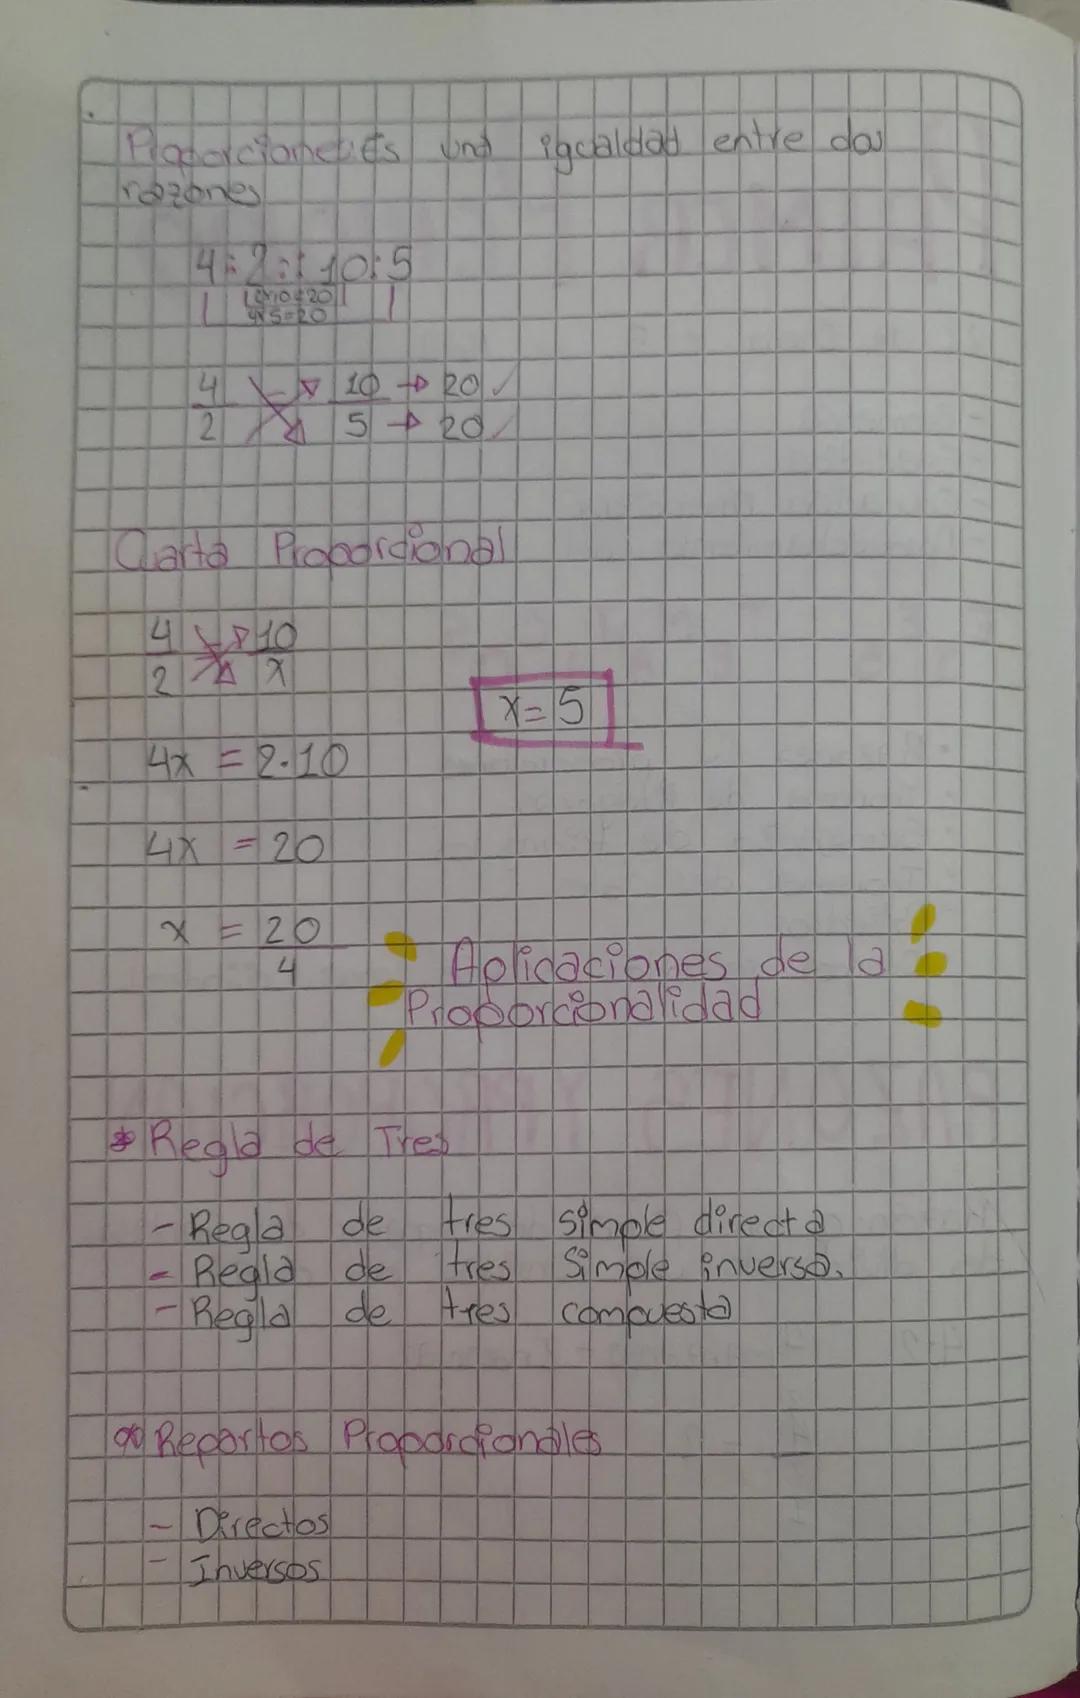 Proporciones es una igualdad entre dos
razones
4:2::10:5
2x10=20
4x5=20
4 10 → 20 ✓
2 5 → 20 ✓
Cuarta Proporcional
4 10
2 x
x = 5
4x = 2·10
4x = 20
x = 20
4
Aplicaciones de la
Proporcionalidad
* Regla de Tres
- Regla de tres simple directa
- Regla de tres simple inversa.
- Regla de tres compuesta
Repartos Proporcionales
- Directos
- Inversos